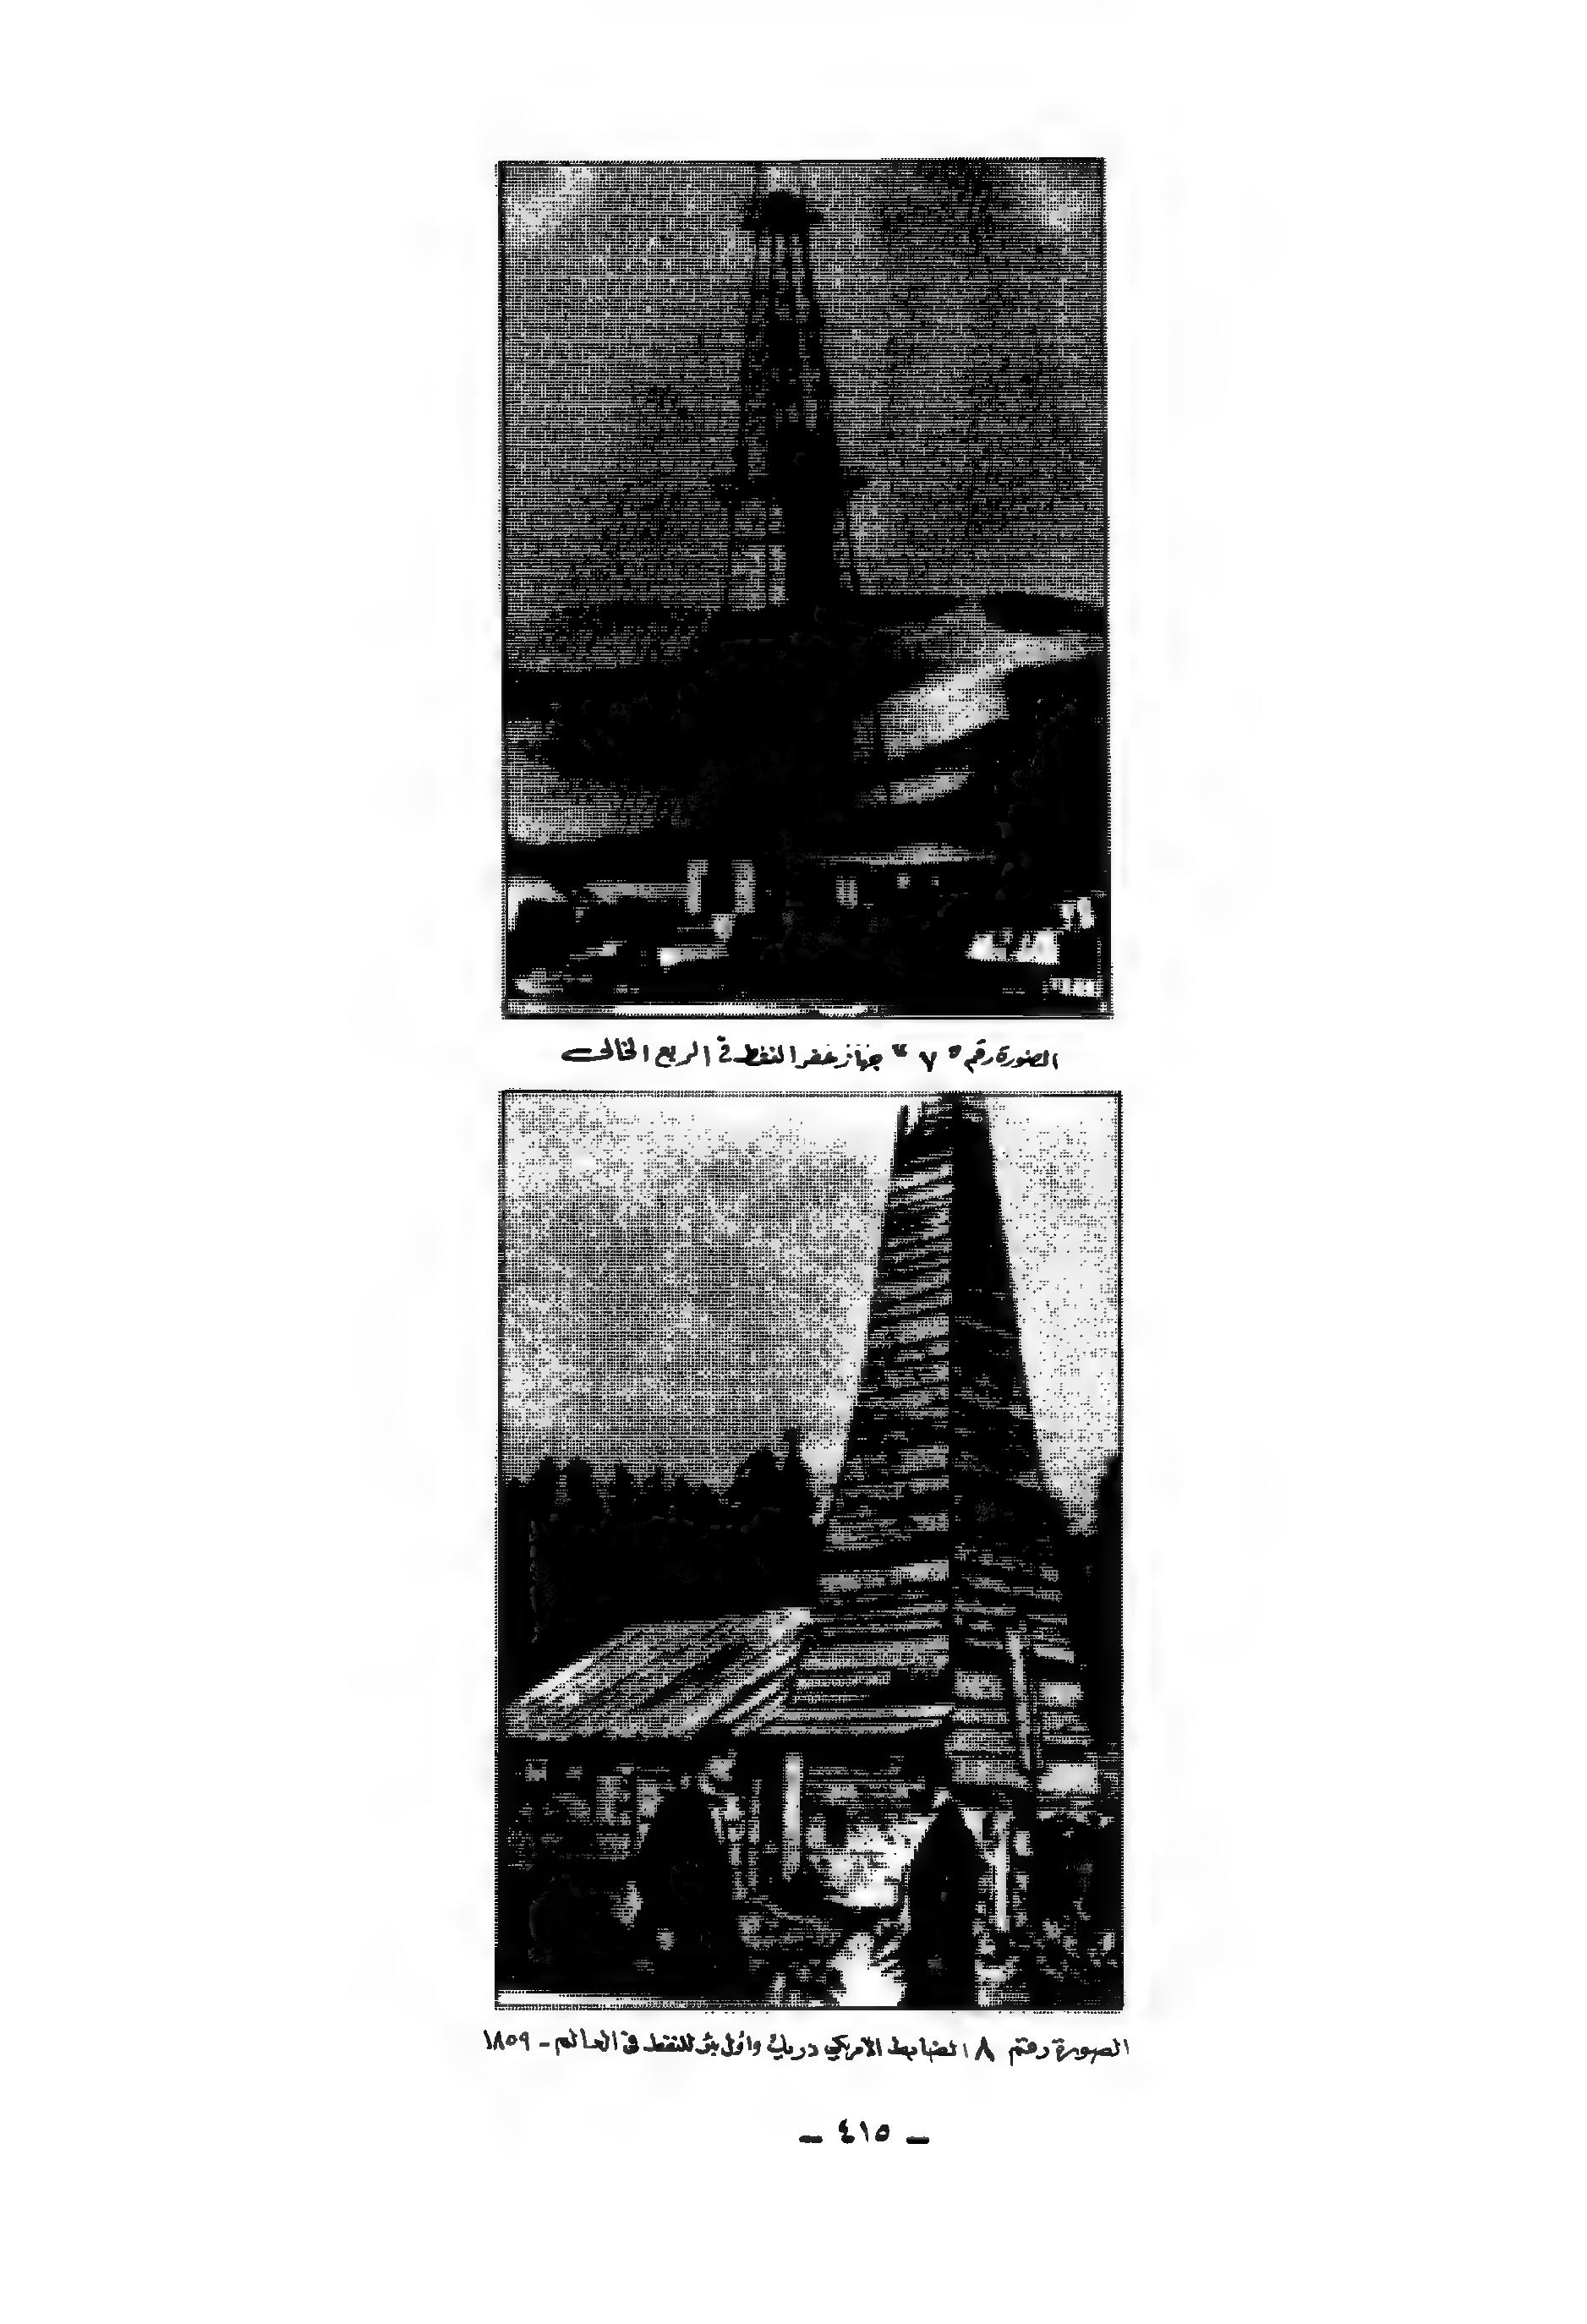 الصورة رقم " ٧ " جهاز حفر النفط في الربع الخالي
الصورة رقم ٨ الضابط الأمريكي دريك وأول بئر للنفط في العالم - ١٨٥٩
- ٤١٥ -